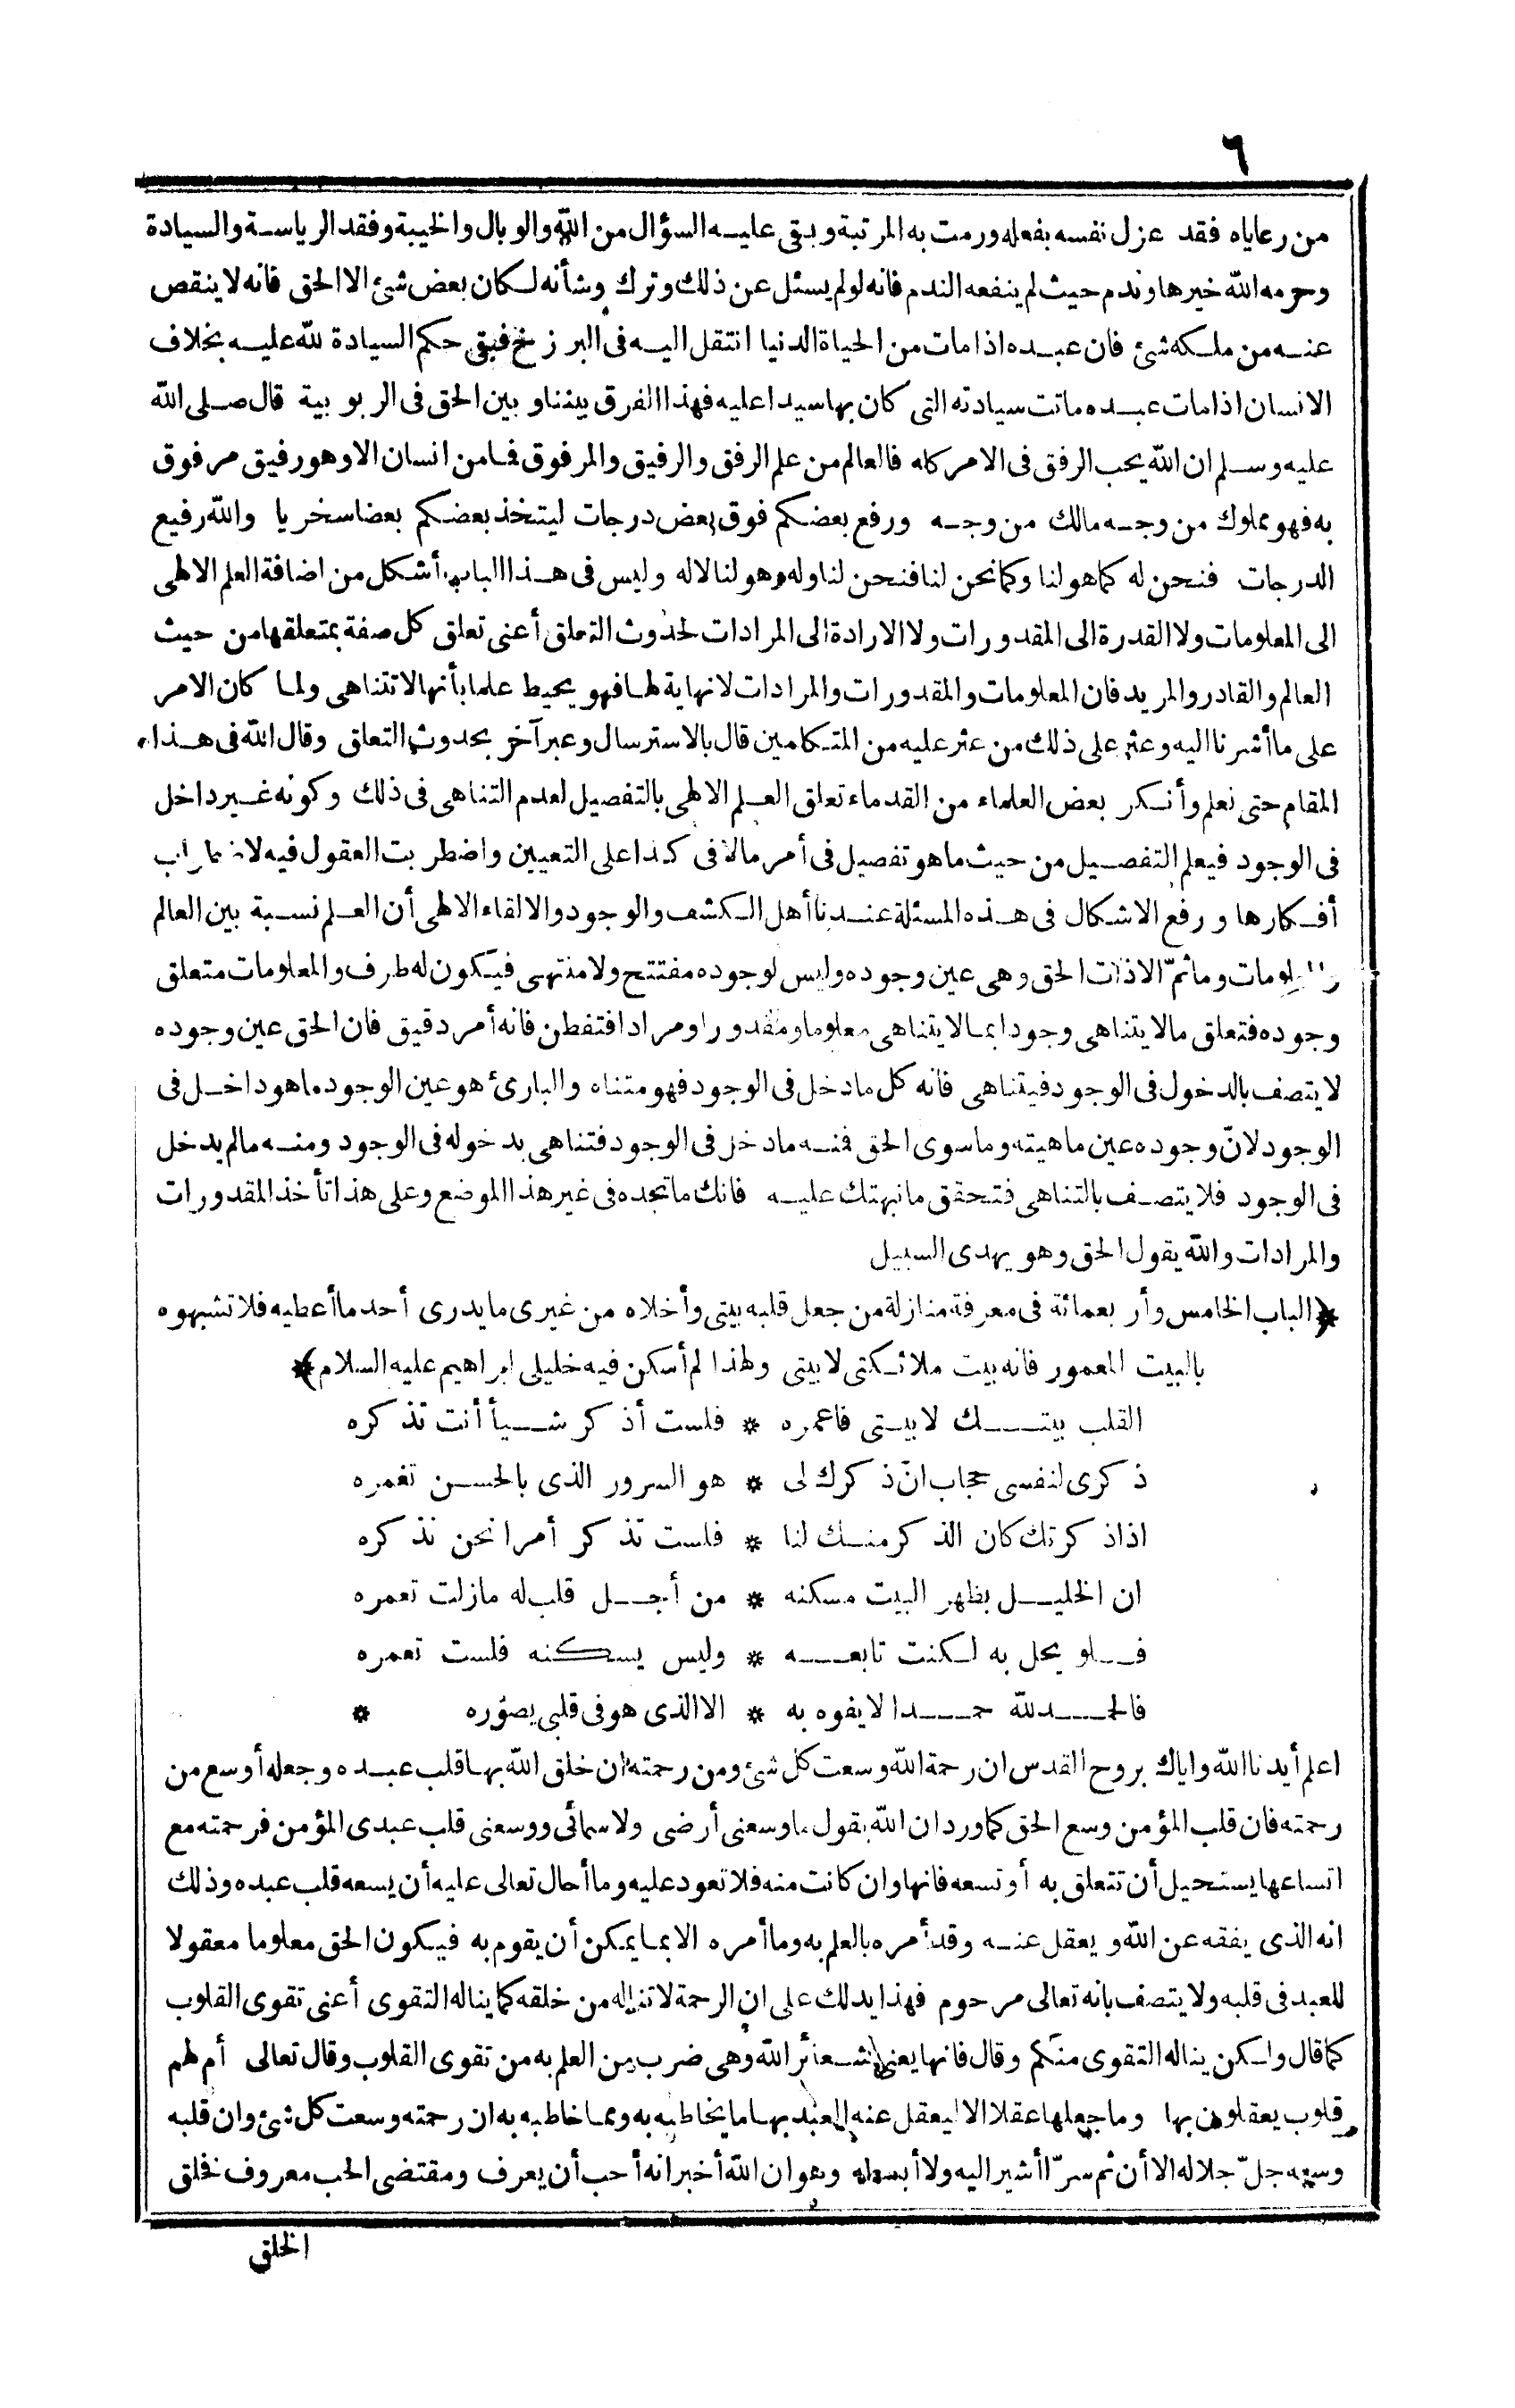 ٦
من رعاياه فقد عزل نفسه بفعله ورمت به المرتبة وبقى عليه السؤال من الله والوبال والخيبة وفقد الرياسة والسيادة
وحرمه الله خيرها وندم حيث لم ينفعه الندم فانه لو لم يسئل عن ذلك وترك وشأنه لكان بعض شئ الا الحق فانه لا ينقص
عنه من ملكه شئ فان عبده اذا مات من الحياة الدنيا انتقل اليه فى البرزخ فبقى حكم السيادة لله عليه بخلاف
الانسان اذا مات عبده ماتت سيادته التى كان بها سيدا عليه فهذا الفرق بيننا وبين الحق فى الربوبية قال صلى الله
عليه وسلم ان الله يحب الرفق فى الامر كله فالعالم من علم الرفق والرفيق والمرفوق فما من انسان الا وهو رفيق مرفوق
به فهو مملوك من وجه مالك من وجه ورفع بعضكم فوق بعض درجات ليتخذ بعضكم بعضا سخريا والله رفيع
الدرجات فنحن له كما هو لنا وكما نحن لنا فنحن لنا وله وهو لنا لا له وليس فى هذا الباب أشكل من اضافة العلم الالهى
الى المعلومات ولا القدرة الى المقدورات ولا الارادة الى المرادات لحدوث التعلق أعنى تعلق كل صفة بمتعلقها من حيث
العالم والقادر والمريد فان المعلومات والمقدورات والمرادات لا نهاية لها فهو يحيط علما بأنها لا تتناهى ولما كان الامر
على ما أشرنا اليه وعثر على ذلك من عثر عليه من المتكلمين قال بالاسترسال وعبر آخر بحدوث التعلق وقال الله فى هذا
المقام حتى نعلم وأنكر بعض العلماء من القدماء تعلق العلم الالهى بالتفصيل لعدم التناهى فى ذلك وكونه غير داخل
فى الوجود فيعلم التفصيل من حيث ما هو تفصيل فى أمر ما لا فى كذا على التعيين واضطربت العقول فيه لاضطراب
أفكارها ورفع الاشكال فى هذه المسئلة عندنا أهل الكشف والوجود والالقاء الالهى أن العلم نسبة بين العالم
والمعلومات وما ثمّ الا ذات الحق وهى عين وجوده وليس لوجوده مفتتح ولا منتهى فيكون له طرف والمعلومات متعلق
وجوده فتعلق ما لا يتناهى وجودا بما لا يتناهى معلوما ومقدورا ومرادا فتفطن فانه أمر دقيق فان الحق عين وجوده
لا يتصف بالدخول فى الوجود فيتناهى فانه كل ما دخل فى الوجود فهو متناه والبارئ هو عين الوجود ما هو داخل فى
الوجود لانّ وجوده عين ماهيته وما سوى الحق فمنه ما دخل فى الوجود فتناهى بدخوله فى الوجود ومنه ما لم يدخل
فى الوجود فلا يتصف بالتناهى فتحقق ما نبهتك عليه فانك ما تجده فى غير هذا الموضع وعلى هذا تأخذ المقدورات
والمرادات والله يقول الحق وهو يهدى السبيل
﴿الباب الخامس وأربعمائة فى معرفة منازلة من جعل قلبه بيتى وأخلاه من غيرى ما يدرى أحد ما أعطيه فلا تشبهوه
بالبيت المعمور فانه بيت ملائكتى لا بيتى ولهذا لم أسكن فيه خليلى ابراهيم عليه السلام﴾
القلب بيتك لا بيتى فاعمره * فلست أذكر شيأ أنت تذكره
ذكرى لنفسى حجاب انّ ذكرك لى * هو السرور الذى بالحسن تغمره
اذا ذكرتك كان الذكر منك لنا * فلست تذكر أمرا نحن نذكره
ان الخليل بظهر البيت مسكنه * من أجل قلب له مازلت تعمره
فلو يحل به لكنت تابعه * وليس يسكنه فلست تعمره
فالحمد لله حمدا لا يفوه به * الا الذى هو فى قلبى يصوّره *
اعلم أيدنا الله واياك بروح القدس ان رحمة الله وسعت كل شئ ومن رحمته ان خلق الله بها قلب عبده وجعله أوسع من
رحمته فان قلب المؤمن وسع الحق كما ورد ان الله يقول ما وسعنى أرضى ولا سمائى ووسعنى قلب عبدى المؤمن فرحمته مع
اتساعها يستحيل أن تتعلق به أو تسعه فانها وان كانت منه فلا تعود عليه وما أحال تعالى عليه أن يسعه قلب عبده وذلك
انه الذى يفقه عن الله ويعقل عنه وقد أمره بالعلم به وما أمره الا بما يمكن أن يقوم به فيكون الحق معلوما معقولا
للعبد فى قلبه ولا يتصف بانه تعالى مرحوم فهذا يدلك على ان الرحمة لا تناله من خلقه كما يناله التقوى أعنى تقوى القلوب
كما قال ولكن يناله التقوى منكم وقال فانها يعنى شعائر الله وهى ضرب من العلم به من تقوى القلوب وقال تعالى أم لهم
قلوب يعقلون بها وما جعلها عقلا الا ليعقل عنه العبد بها ما يخاطبه به ومما خاطبه به ان رحمته وسعت كل شئ وان قلبه
وسعه جلّ جلاله الا أن ثم سرّا أشير اليه ولا أبسطه وهو ان الله أخبر انه أحب أن يعرف ومقتضى الحب معروف فخلق
الخلق